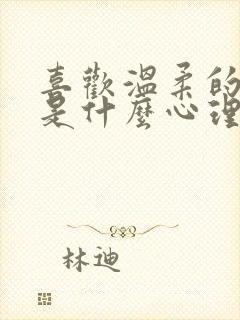 喜歡溫柔的
是什麼心理
林迪